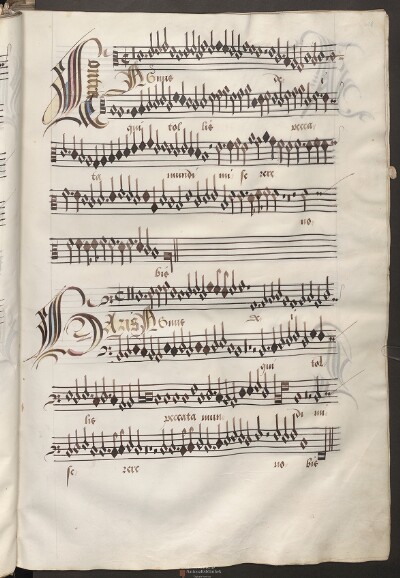 Contra
Agnus De i
qui tol lis pecca:
ta mundi mi se rere
no:
bis
Bazis Agnus De i
qui tol
lis peccata mun: di mi
se: rere no: bis